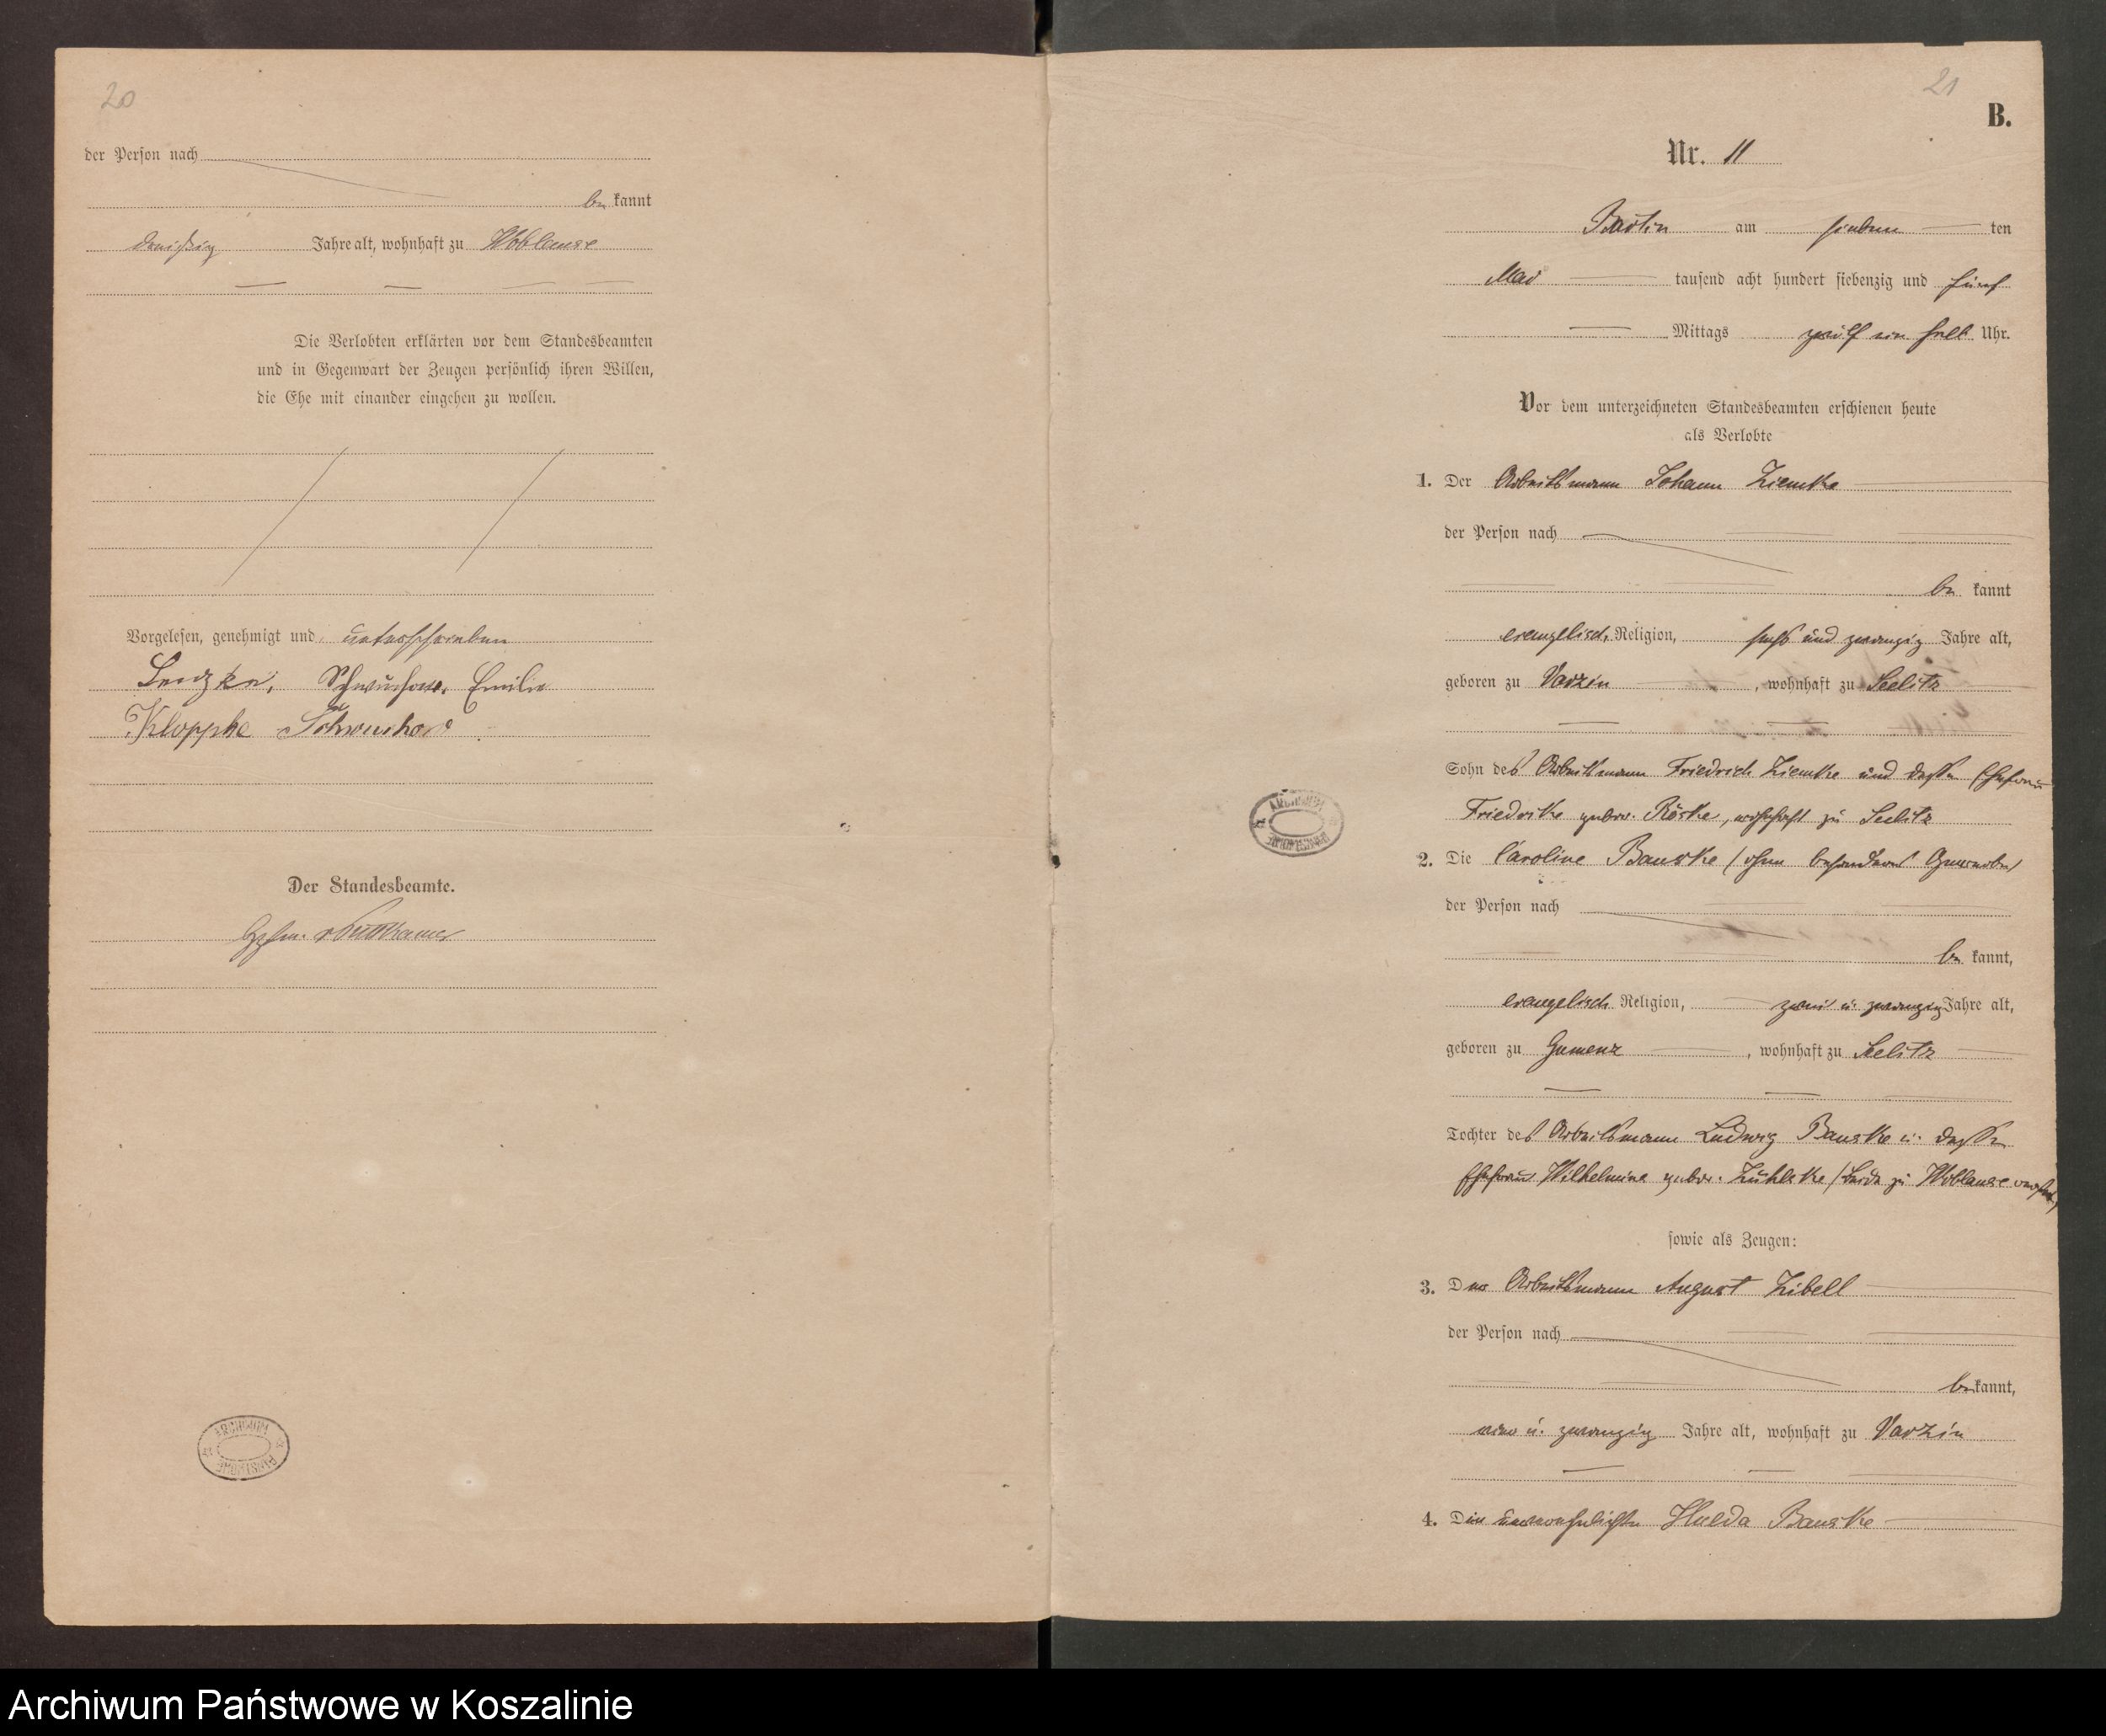 20
der Person nach
be kannt
dreißig Jahre alt, wohnhaft zu Woblanse
Die Verlobten erklärten vor dem Standesbeamten
und in Gegenwart der Zeugen persönlich ihren Willen,
die Ehe mit einander eingehen zu wollen.
Vorgelesen, genehmigt und unterschrieben
Schwuchow. Emilie
Kloppke Schwuchow
Der Standesbeamte.
Puttkamer
ARCHIWUM PAŃSTWOWE
21
B.
Nr. 11
Bartin am sieben ten
Mai tausend acht hundert siebenzig und fünf
Mittags zwölf ein halb Uhr.
Vor dem unterzeichneten Standesbeamten erschienen heute
als Verlobte
1. Der Arbeitsmann Johann Ziemke
der Person nach
be kannt
evangelisch. Religion, sechs und zwanzig Jahre alt,
geboren zu Varzin, wohnhaft zu Seelitz
Sohn des Arbeitsmann Friedrich Ziemke und dessen Ehefrau
Friedrike gebor. Röske, wohnhaft zu Seelitz
2. Die Caroline Bauske (ohne besonderes Gewerbe)
der Person nach
be kannt,
evangelisch Religion, zwei u. zwanzig Jahre alt,
geboren zu Gumenz, wohnhaft zu Seelitz
Tochter des Arbeitsmann Ludwig Bauske u. dessen
Ehefrau Wilhelmine gebor. Zühlske (beide zu Woblanse
sowie als Zeugen:
3. Der Arbeitsmann August Zibell
der Person nach
be kannt,
vier u. zwanzig Jahre alt, wohnhaft zu Varzin
4. Die unverehelichte Hulda Bauske
ARCHIWUM PAŃSTWOWE
Archiwum Państwowe w Koszalinie